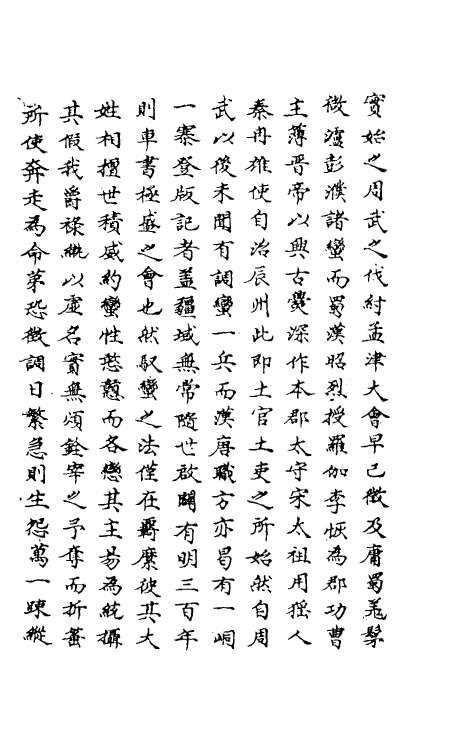 實始之周武之代紂孟津大會早已徵及庸蜀羌髳
微瀘彭濮諸蠻而蜀漢昭烈授羅伽李恢為郡功曹
主薄晉帝以興古爨深作本郡太守宋太祖用猺人
秦冉雄使自治辰州此即土官土吏之所始然自周
武以後未聞有調蠻一兵而漢唐職方亦曷有一峒
一寨登版記者盖疆域無常隨世啟闢有明三百年
則車書極盛之會也然馭蠻之法僅在羈縻彼其大
姓相擅世積威約蠻性愗戇而各戀其主易為統攝
其假我爵祿𦃓以虛名實無煩銓宰之予奪而折菙
所使奔走為命第恐徵調日繁急則生怨萬一踈縱